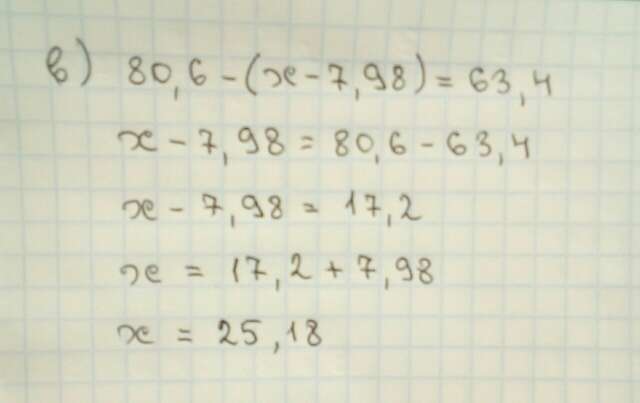 в) 80,6 - (x - 7,98) = 63,4
x - 7,98 = 80,6 - 63,4
x - 7,98 = 17,2
x = 17,2 + 7,98
x = 25,18